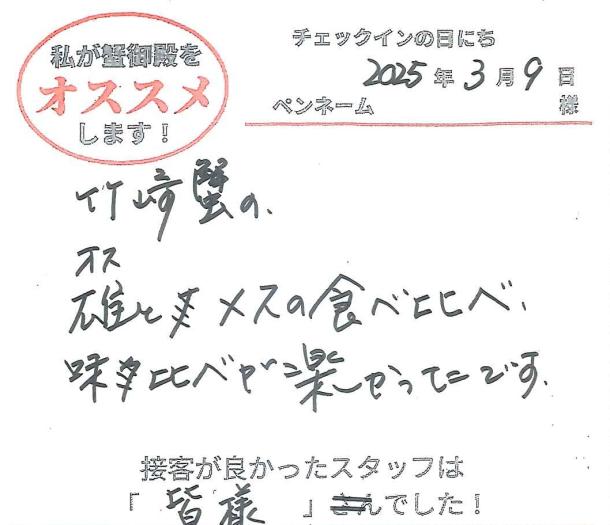 私が蟹御殿を
オススメ
します！
チェックインの日にち
2025年3月9日
ペンネーム 様
竹崎蟹の、
オス
雄とメスの食べ比べ、
味比べが楽しかったです。
接客が良かったスタッフは
「 皆様 」さんでした！